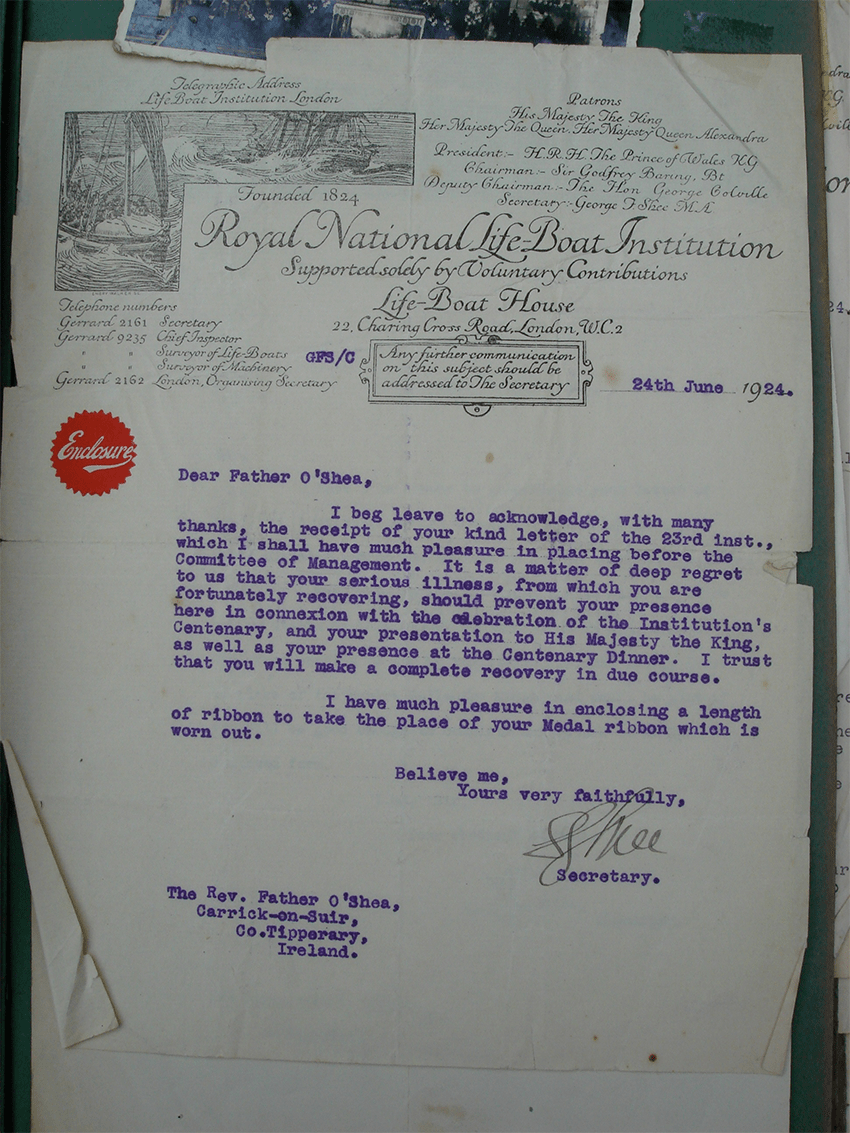 Telegraphic Address
Life-Boat Institution London
Patrons
His Majesty The King
Her Majesty The Queen. Her Majesty Queen Alexandra
President:- H.R.H. The Prince of Wales K.G
Chairman:- Sir Godfrey Baring, Bt
Deputy Chairman:- The Hon George Colville
Secretary:- George F Shee M.A
Founded 1824
Royal National Life-Boat Institution
Supported solely by Voluntary Contributions
Life-Boat House
22, Charing Cross Road, London, W.C.2
Telephone numbers
Gerrard 2161 Secretary
Gerrard 9235 Chief Inspector
" " Surveyor of Life-Boats
" " Surveyor of Machinery
Gerrard 2162 London, Organising Secretary
GFS/C
Any further communication
on this subject should be
addressed to The Secretary
24th June 1924.
Enclosure
Dear Father O'Shea,
I beg leave to acknowledge, with many
thanks, the receipt of your kind letter of the 23rd inst.,
which I shall have much pleasure in placing before the
Committee of Management. It is a matter of deep regret
to us that your serious illness, from which you are
fortunately recovering, should prevent your presence
here in connexion with the celebration of the Institution's
Centenary, and your presentation to His Majesty the King,
as well as your presence at the Centenary Dinner. I trust
that you will make a complete recovery in due course.
I have much pleasure in enclosing a length
of ribbon to take the place of your Medal ribbon which is
worn out.
Believe me,
Yours very faithfully,
G F Shee
Secretary.
The Rev. Father O'Shea,
Carrick-on-Suir,
Co.Tipperary,
Ireland.